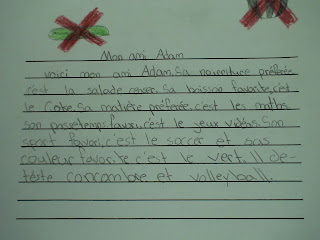 Mon ami Adam
voici mon ami Adam. Sa nourriture préférée
c'est la salade cesar. Sa boisson favorite, c'est
le Coke. Sa matière préférée, c'est les maths
son passetemp favori, c'est le jeux vidéos. Son
sport favori, c'est le soccer et sas
couleur favorite c'est le vert. Il de-
téste concombre et volleyball.